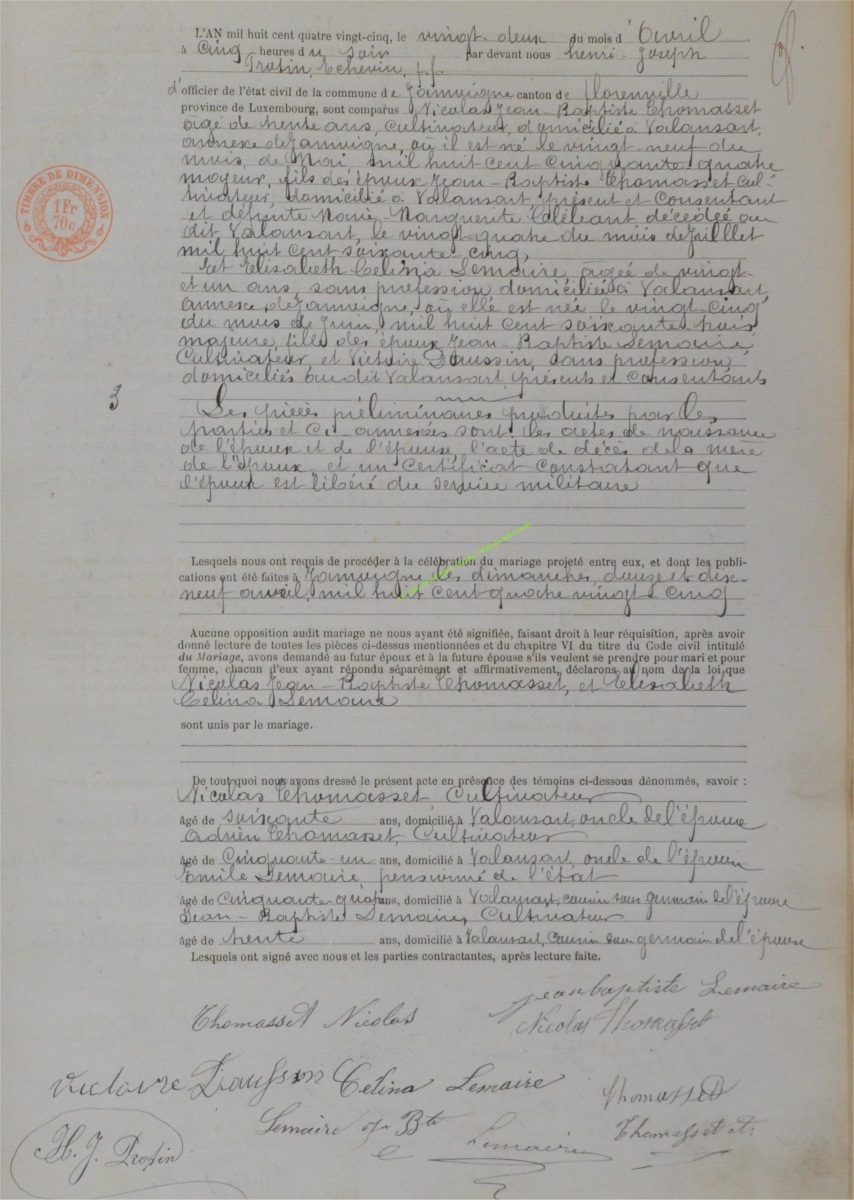 L'AN mil huit cent quatre vingt-cinq, le vingt-deux du mois d'Avril
à Cinq heures du soir par devant nous henri-Joseph
Protin Echevin, f.f.
d'officier de l'état civil de la commune de Jamoigne canton de Florenville
province de Luxembourg, sont comparus Nicolas Jean-Baptiste Thomasset
agé de trente ans, cultivateur, domicilié à Valansart,
annexe de Jamoigne, où il est né le vingt-neuf du
mois, de Mai mil huit cent cinquante-quatre
majeur, fils des époux Jean-Baptiste Thomasset Cul-
tivateur, domicilié à Valansart, présent et Consentant
et défunte Marie-Marguerite décédée au
dit Valansart, le vingt-quatre du mois de Juillet
mil huit cent soixante cinq,
Et Elisabeth Celinia Lemaire agée de vingt-
et un ans, sans profession domiciliée à Valansart,
annexe de Jamoigne, où elle est née le vingt-cinq
du mois de Juin, mil huit cent soixante trois
majeure, fille des époux Jean-Baptiste Lemaire
Cultivateur, et Victoire Daussin, sans profession
domiciliés au dit Valansart présents et consentants
Les pièces préliminaires produites par les
parties et Ci-annexées sont: les actes de naissance
de l'époux et de l'épouse, l'acte de décès de la mère
de l'époux, et un Certificat Constatant que
l'époux est libéré du service militaire
TIMBRE DE DIMENSION
1 Fr
70 c
3
Lesquels nous ont requis de procéder à la célébration du mariage projeté entre eux, et dont les publi-
cations ont été faites à Jamoigne les dimanches, douze et dix-
neuf avril, mil huit cent quatre vingt-cinq
Aucune opposition audit mariage ne nous ayant été signifiée, faisant droit à leur réquisition, après avoir
donné lecture de toutes les pièces ci-dessus mentionnées et du chapitre VI du titre du Code civil intitulé
du Mariage, avons demandé au futur époux et à la future épouse s'ils veulent se prendre pour mari et pour
femme, chacun d'eux ayant répondu séparément et affirmativement, déclarons au nom de la loi que
Nicolas Jean-Baptiste Thomasset, et Elisabeth
Celina Lemaire
sont unis par le mariage.
De tout quoi nous avons dressé le présent acte en présence des témoins ci-dessous dénommés, savoir :
Nicolas Thomasset, Cultivateur
âgé de soixante ans, domicilié à Valansart, oncle de l'épouse
Adrien Thomasset, Cultivateur
âgé de Cinquante-un ans, domicilié à Valansart, oncle de l'époux
Emile Lemaire pensionné de l'état
âgé de cinquante ans, domicilié à Valansart, cousin sous germain de l'épouse
Jean-Baptiste Lemaire, Cultivateur
âgé de trente ans, domicilié à Valansart, Cousin sous germain de l'épouse
Lesquels ont signé avec nous et les parties contractantes, après lecture faite.
jean baptiste Lemaire
Thomasset Nicolas
Nicolas Thomasset
Victoire Daussin Celina Lemaire
Thomasset
Lemaire J Bte
Thomasset
Lemaire
H. J. Protin